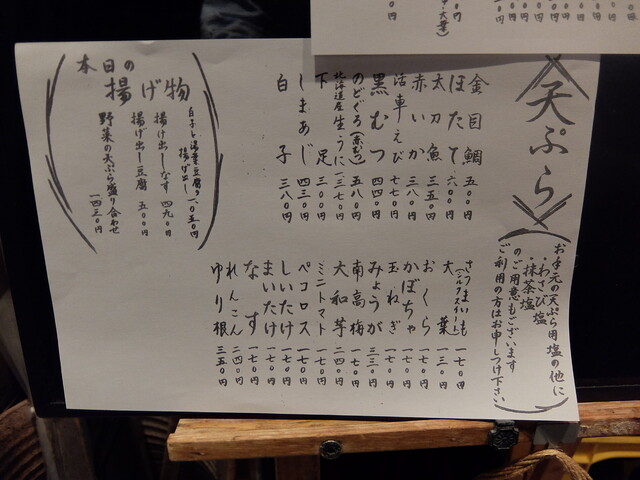 天ぷら
お手元の天ぷら用塩の他に
・わさび塩
・抹茶塩
のご用意もございます
ご利用の方はお申しつけ下さい
金目鯛 五〇〇円
ほたて 六〇〇円
太刀魚 三五〇円
赤いか 三八〇円
活車えび 七七〇円
黒むつ 四四〇円
のどぐろ(赤むつ) 五八〇円
北海道産生うに 一三七〇円
下足 三〇〇円
しまあじ 四三〇円
白子 三八〇円
さつまいも(シルクスイート) 一七〇円
大葉 一三〇円
おくら 一七〇円
かぼちゃ 一七〇円
玉ねぎ 一七〇円
みょうが 三三〇円
南高梅 一七〇円
大和芋 二四〇円
ミニトマト 一七〇円
ペコロス 一七〇円
しいたけ 一七〇円
まいたけ 一七〇円
なす 一七〇円
れんこん 二四〇円
ゆり根 三五〇円
本日の
揚げ物
揚げ出し 一、〇五〇円
揚げ出しなす 四九〇円
揚げ出し豆腐 五〇〇円
野菜の天ぷら盛り合わせ
一四三〇円